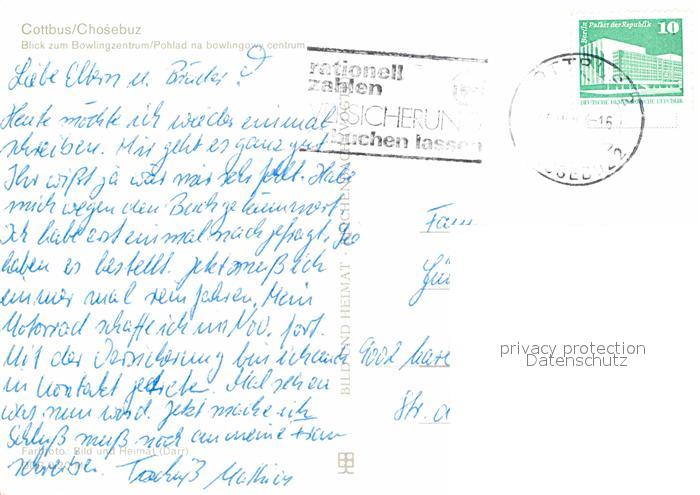 Cottbus/Chośebuz
Blick zum Bowlingzentrum/Pohlad na bowlingowy centrum
Liebe Eltern u. Brüder!
Heute möchte ich wieder einmal
schreiben. Mir geht es ganz gut
Ihr wißt ja was mir sehr fehlt. Habe
mich wegen den Buch gekümmert.
Ich habe erst einmal nachgefragt. Sie
haben es bestellt. Jetzt muß ich
immer mal rein fahren. Mein
Motorrad schaffe ich im Nov. fort.
Mit der Versicherung bin ich auch
in Kontakt getreten. Mal sehen
was nun wird. Jetzt mache ich
Schluß muß noch an meine
schreiben. Tschüß
Farbfoto: Bild und Heimat (Darr)
BILD UND HEIMAT
rationell
zahlen
VERSICHERUNG
buchen lassen
Berlin Palast der Republik
10
DEUTSCHE DEMOKRATISCHE REPUBLIK
COTTBUS
CHOSEBUZ 2
Fam
9002
Str.
privacy protection
Datenschutz